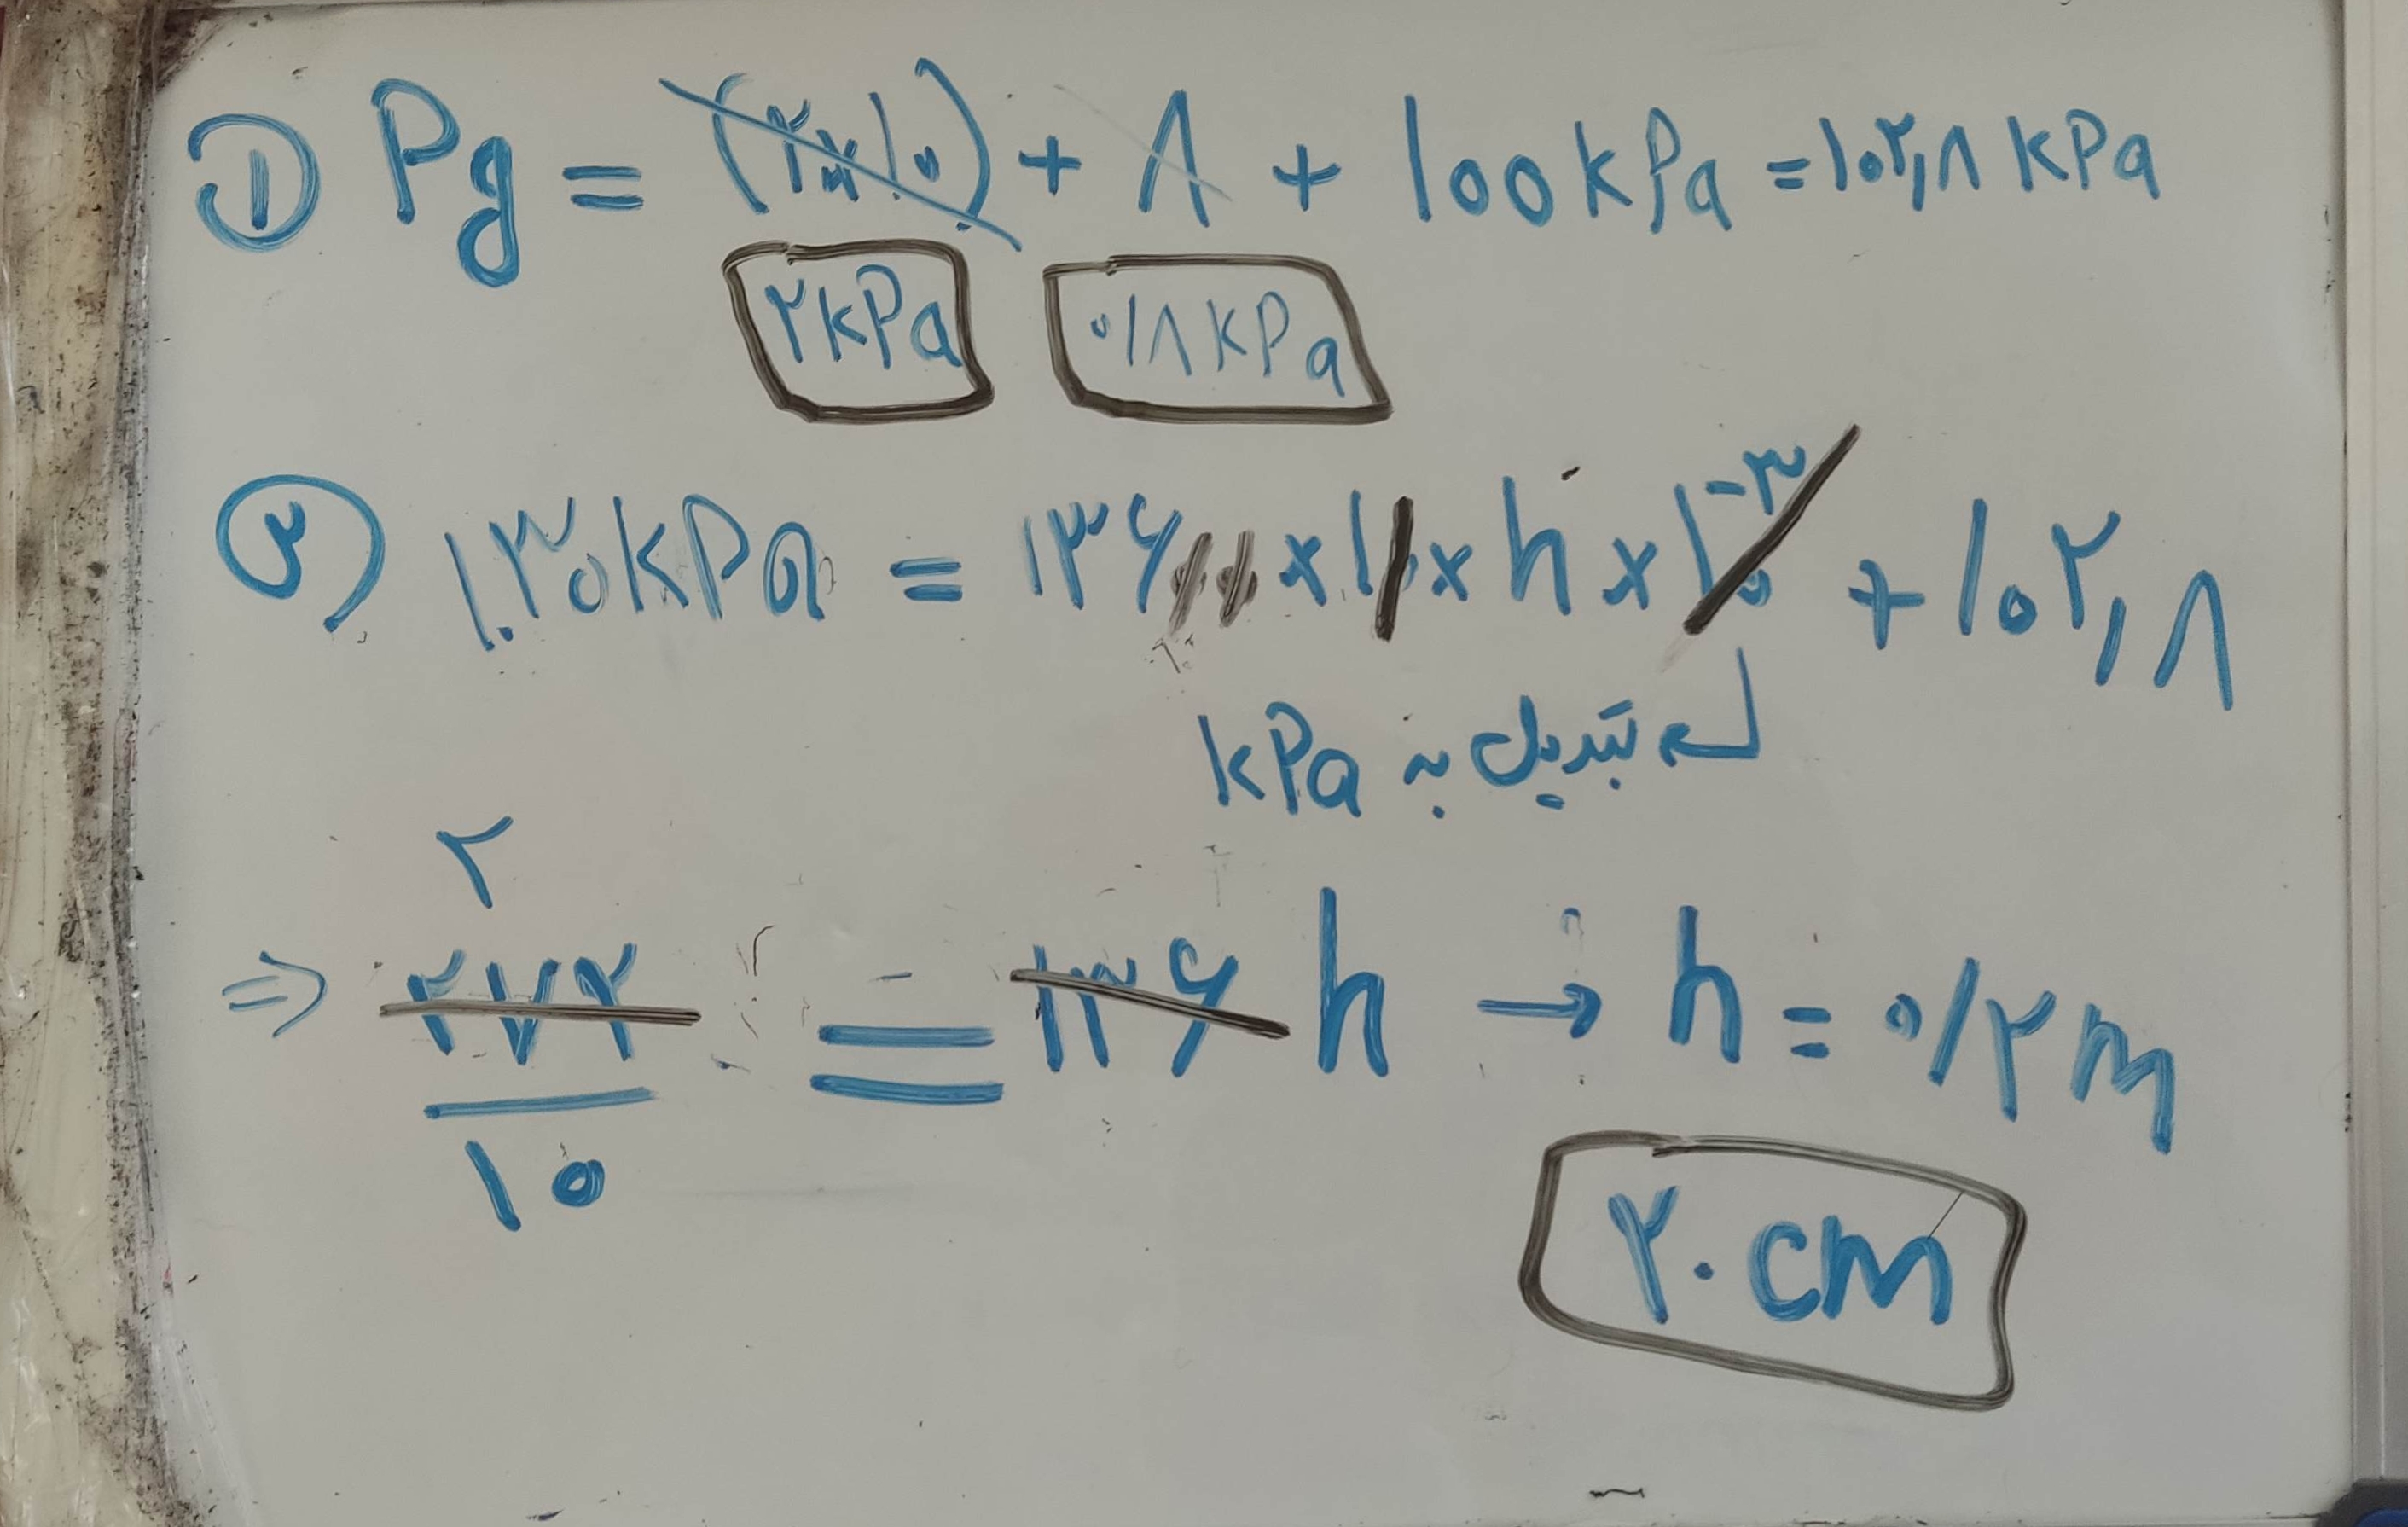 ① Pg = (۲×۱۰) + ۸ + ۱۰۰kPa = ۱۰۲,۸ kPa
۲kPa ۰/۸kPa
۲) ۱۳۰kPa = ۱۳۶۰۰ × ۱۰ × h × ۱۰⁻³ + ۱۰۲,۸
↳ تبدیل به kPa
۲
⇒ ۲۷۲/۱۰ = ۱۳۶ h → h = ۰/۲m
۲۰ cm